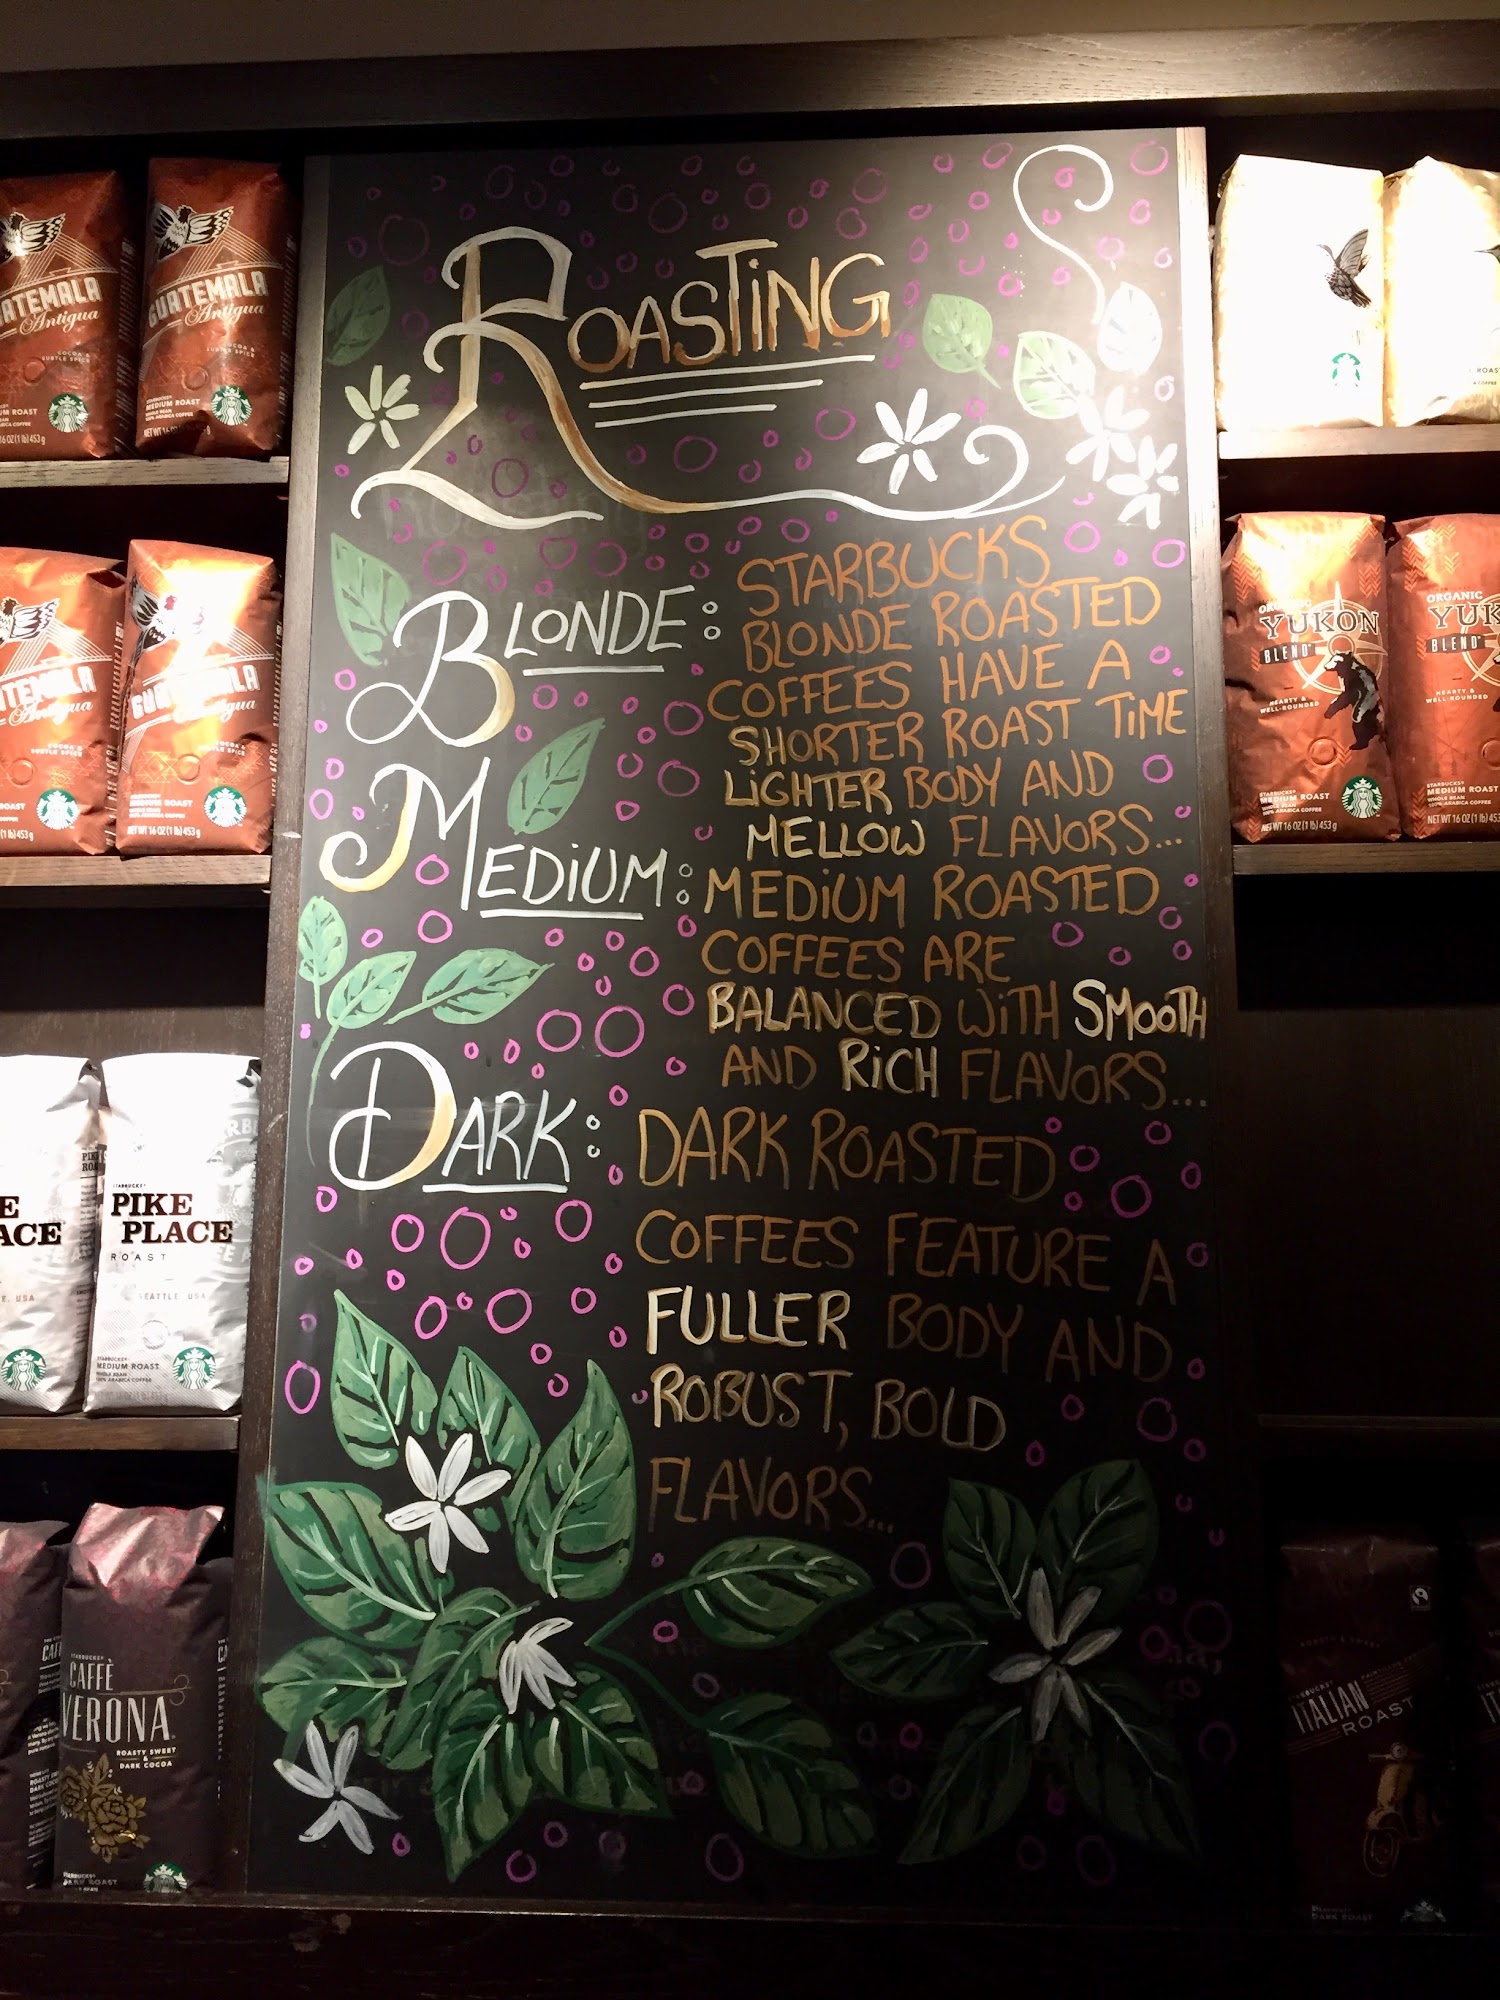 ROASTING
BLONDE: STARBUCKS
BLONDE ROASTED
COFFEES HAVE A
SHORTER ROAST TIME
LIGHTER BODY AND
MELLOW FLAVORS...
MEDIUM: MEDIUM ROASTED
COFFEES ARE
BALANCED WITH SMOOTH
AND RICH FLAVORS...
DARK: DARK ROASTED
COFFEES FEATURE A
FULLER BODY AND
ROBUST, BOLD
FLAVORS...
GUATEMALA
Antigua
COCOA &
SUBTLE SPICE
MEDIUM ROAST
16 OZ (1 lb) 453 g
GUATEMALA
Antigua
COCOA &
SUBTLE SPICE
STARBUCKS®
MEDIUM ROAST
WHOLE BEAN
100% ARABICA COFFEE
NET WT 16
Antigua
COCOA &
SUBTLE SPICE
ROAST
(1 lb) 453 g
GUATEMALA
Antigua
COCOA &
SUBTLE SPICE
STARBUCKS®
MEDIUM ROAST
WHOLE BEAN
100% ARABICA COFFEE
NET WT 16 OZ (1 lb) 453 g
ACE
USA
STARBUCKS®
PIKE
PLACE
ROAST
SEATTLE, USA
STARBUCKS®
MEDIUM ROAST
WHOLE BEAN
100% ARABICA COFFEE
STARBUCKS®
CAFFÈ
VERONA®
ROASTY SWEET
&
DARK COCOA
STARBUCKS®
DARK ROAST
ORGANIC
YUKON
BLEND™
HEARTY &
WELL-ROUNDED
STARBUCKS®
MEDIUM ROAST
WHOLE BEAN
100% ARABICA COFFEE
NET WT 16 OZ (1 lb) 453 g
ORGANIC
YUKO
BLEND™
HEARTY &
WELL-ROUNDED
STARBUCKS®
MEDIUM ROAST
WHOLE BEAN
100% ARABICA COFFEE
NET WT 16 OZ (1 lb) 453
ROASTY & SWEET
STARBUCKS®
ITALIAN
ROAST
DARK ROAST